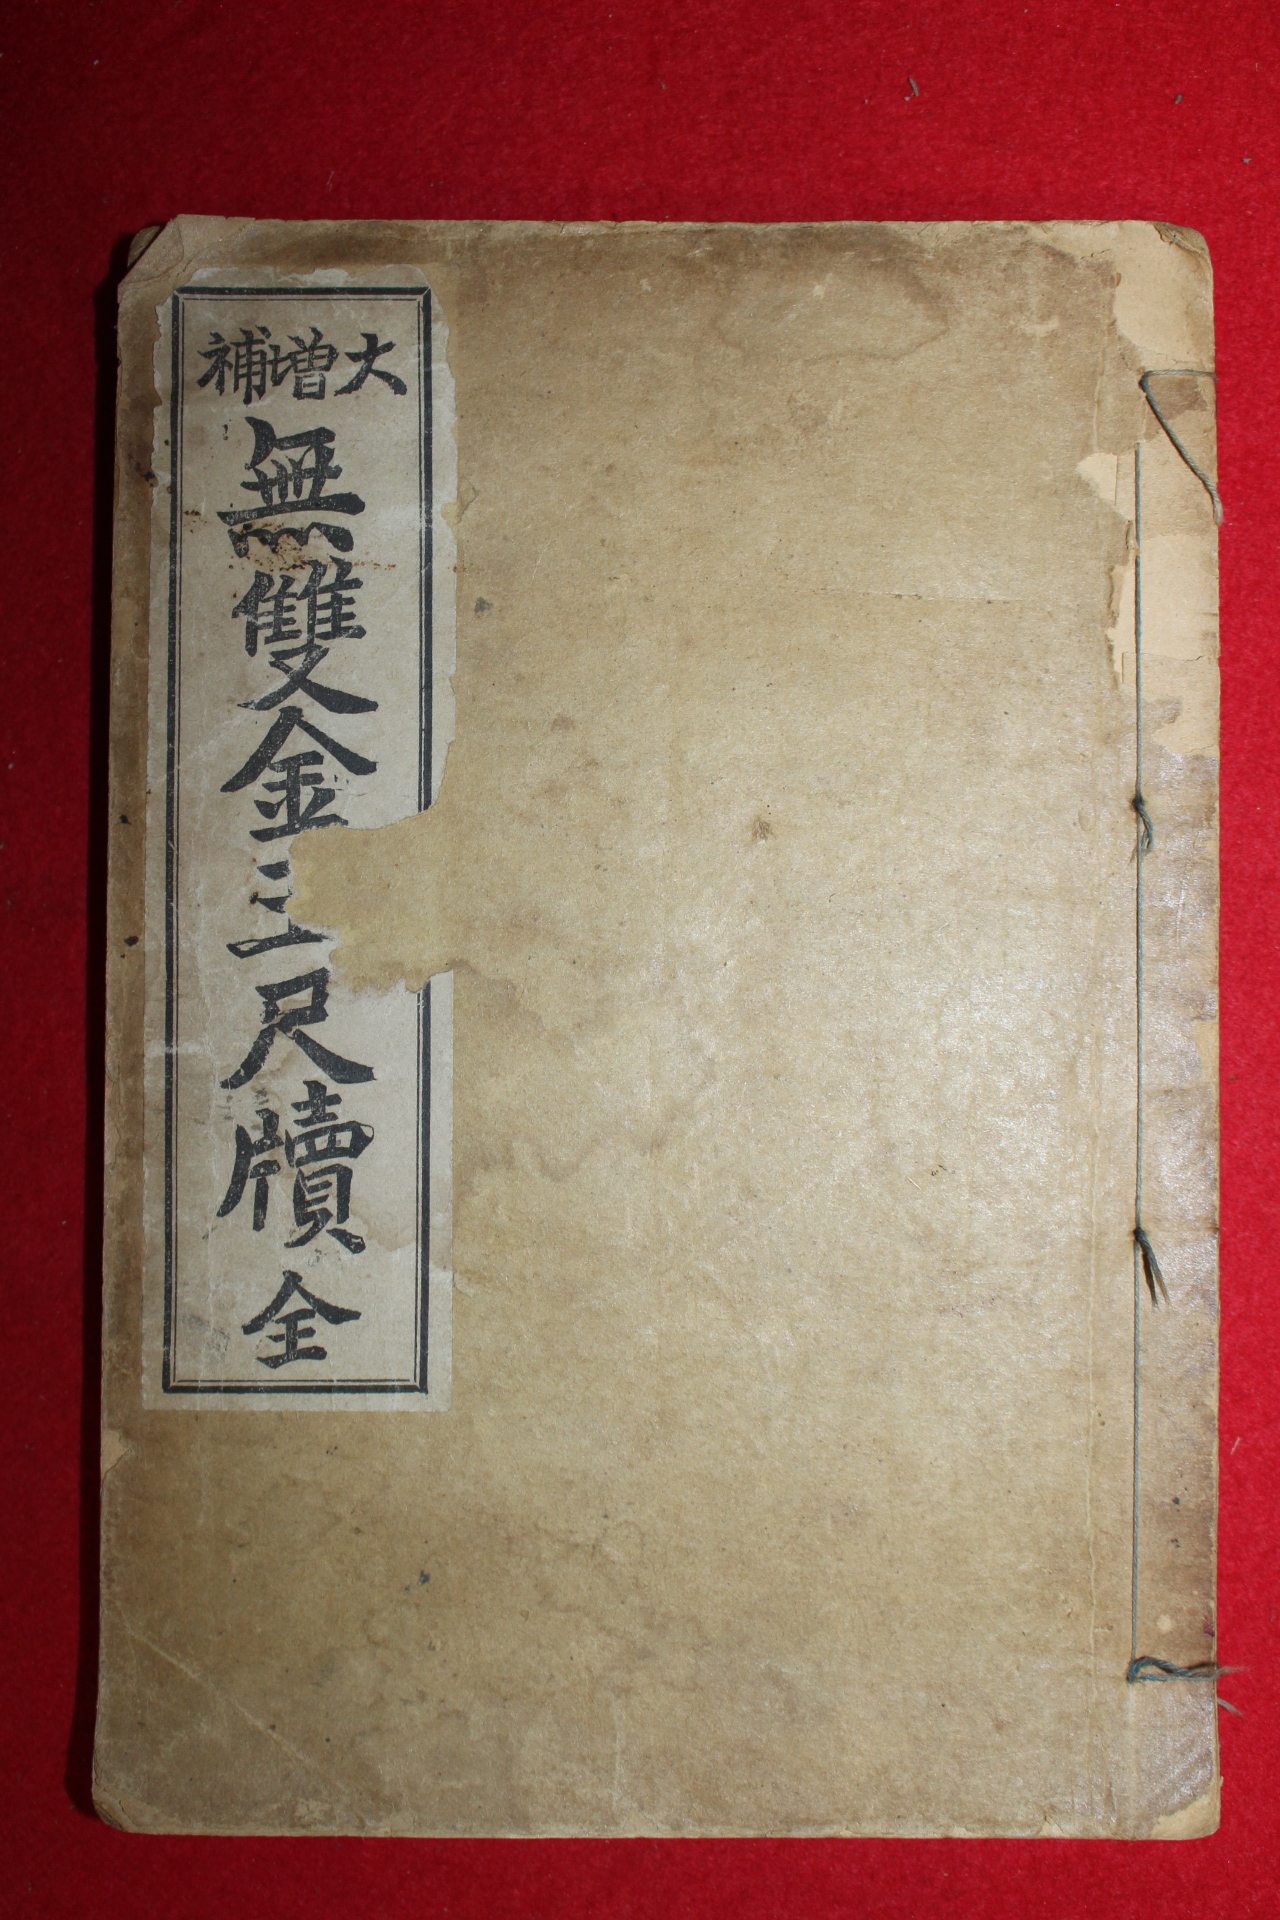 大增補
無雙金玉尺牘 全